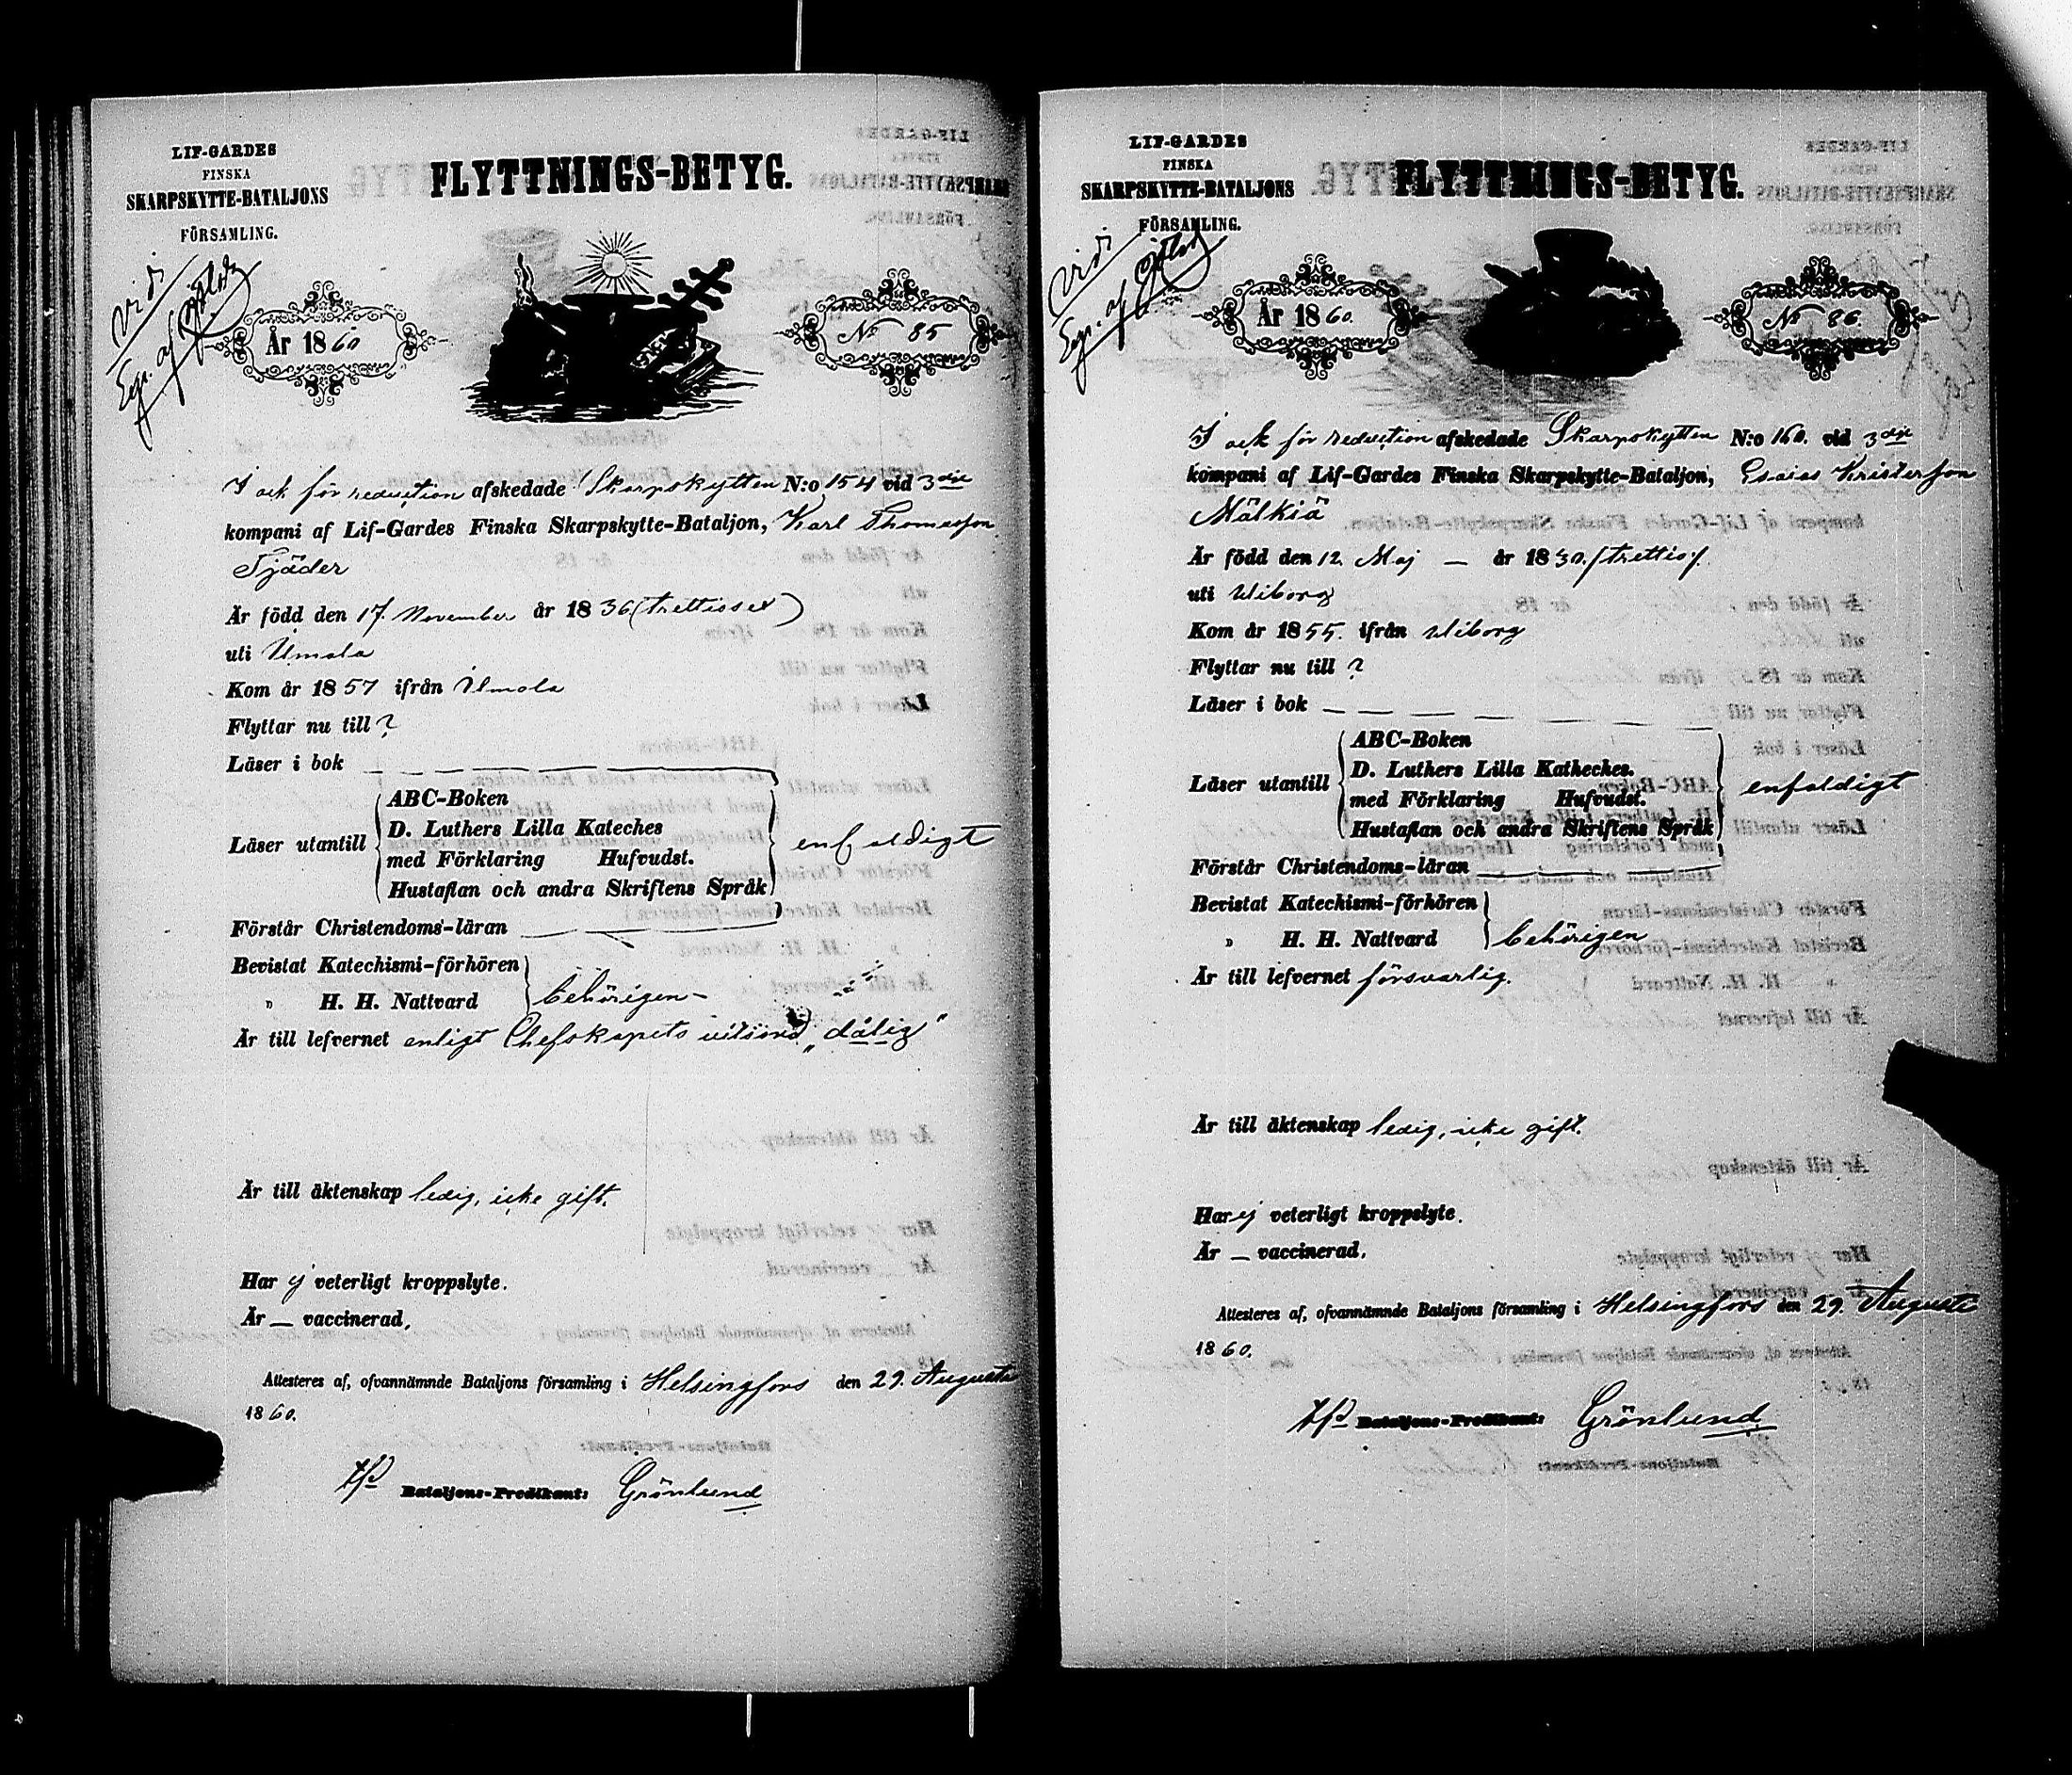 LIF-GARDES
FINSKA
SKARPSKYTTE-BATALJONS
FÖRSAMLING.
FLYTTNINGS-BETYG.
Vidi
År 1860
No 85
I ock för reduction afskedade Skarpskytten N:o 154 vid 3dje
kompani af Lif-Gardes Finska Skarpskytte-Bataljon, Karl Thomasson
Tjäder
Är född den 17. November år 1836 (trettiosex)
uti Ilmola
Kom år 1857 ifrån Ilmola
Flyttar nu till ?
Läser i bok
Läser utantill
ABC-Boken
D. Luthers Lilla Kateches
med Förklaring Hufvudst.
Hustaflan och andra Skriftens Språk
enfaldigt
Förstår Christendoms-läran
Bevistat Katechismi-förhören
„ H. H. Nattvard
behörigen
Är till lefvernet enligt Chefskapets vitsord „dålig"
Är till äktenskap ledig, icke gift.
Har ej veterligt kroppslyte.
Är — vaccinerad.
Attesteres af, ofvannämnde Bataljons församling i Helsingfors den 29. Augusti
1860.
Bataljons-Predikant: Grönlund
LIF-GARDES
FINSKA
SKARPSKYTTE-BATALJONS
FÖRSAMLING.
FLYTTNINGS-BETYG.
Vidi
År 1860.
No 86.
I ock för reduction afskedade Skarpskytten N:o 160. vid 3dje
kompani af Lif-Gardes Finska Skarpskytte-Bataljon, Esaias Kristersson
Mälkiä
Är född den 12. Maj — år 1830. /trettio/.
uti Wiborg
Kom år 1855. ifrån Wiborg
Flyttar nu till ?
Läser i bok
Läser utantill
ABC-Boken
D. Luthers Lilla Katheches.
med Förklaring Hufvudst.
Hustaflan och andra Skriftens Språk
enfaldigt
Förstår Christendoms-läran
Bevistat Katechismi-förhören
„ H. H. Nattvard
behörigen
Är till lefvernet försvarlig.
Är till äktenskap ledig, icke gift.
Har ej veterligt kroppslyte.
Är — vaccinerad.
Attesteres af, ofvannämnde Bataljons församling i Helsingfors den 29. Augusti
1860.
Bataljons-Predikant: Grönlund